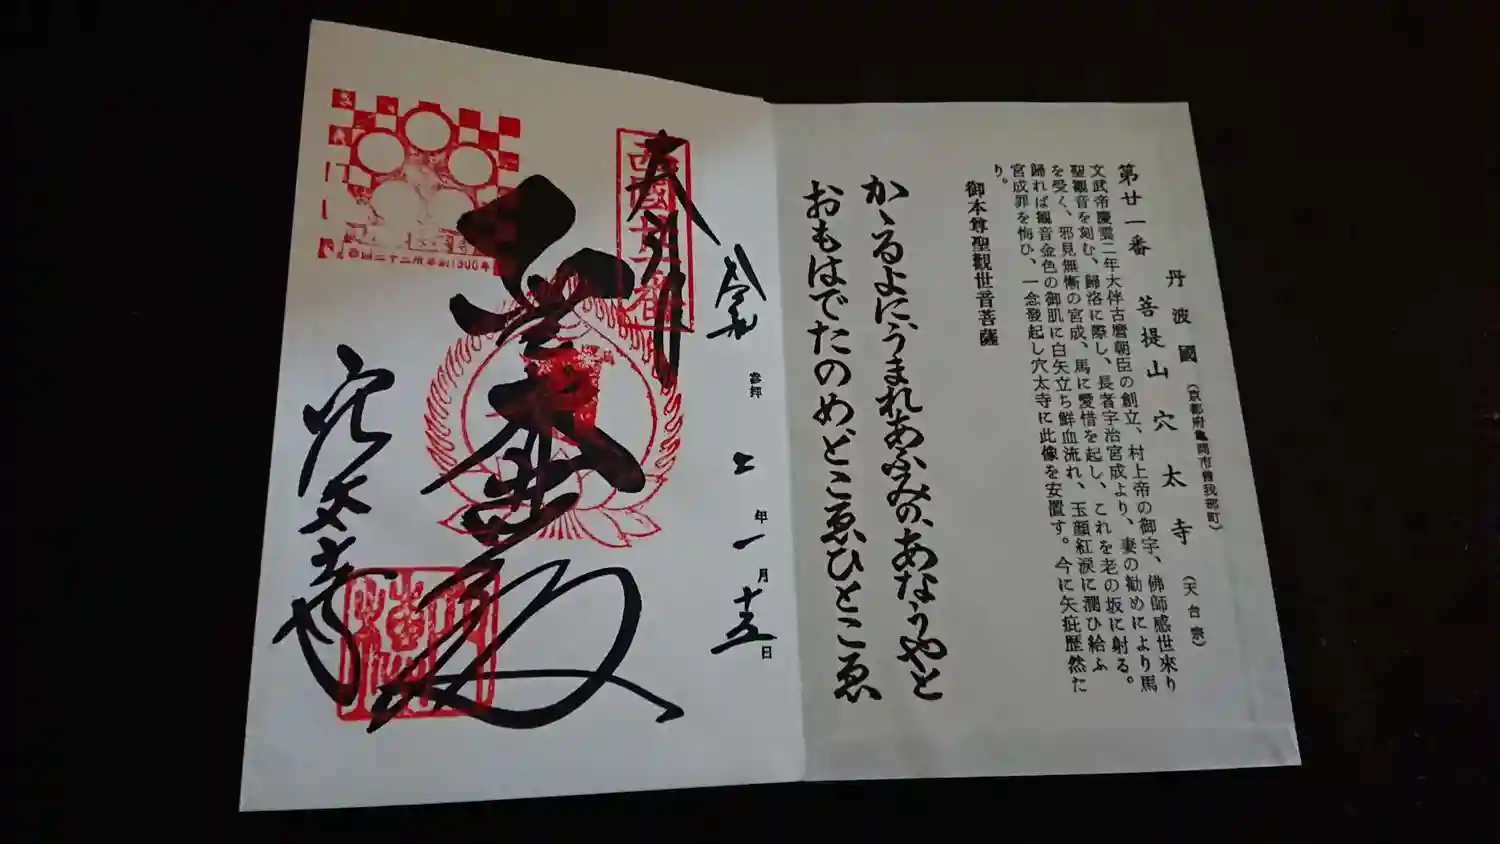 丹波國（京都府亀岡市曾我部町）
第廿一番 菩提山穴太寺（天台宗）
文武帝慶雲二年大伴古麿朝臣の創立、村上帝の御宇、佛師感世來り
聖觀音を刻む、歸洛に際し、長者宇治宮成より、妻の勧めにより馬
を受く、邪見無慚の宮成、馬に愛惜を起し、これを老の坂に射る。
歸れば観音金色の御肌に白矢立ち鮮血流れ、玉顔紅涙に潤ひ給ふ
宮成罪を悔ひ、一念發起し穴太寺に此像を安置す。今に矢疵歴然た
り。
御本尊聖觀世音菩薩
かゝるよにうまれあふみのあなうやと
おもはでたのめどこゑひとこゑ
奉拝
西國廿一番
令和
参拝
七年一月十五日
穴太寺